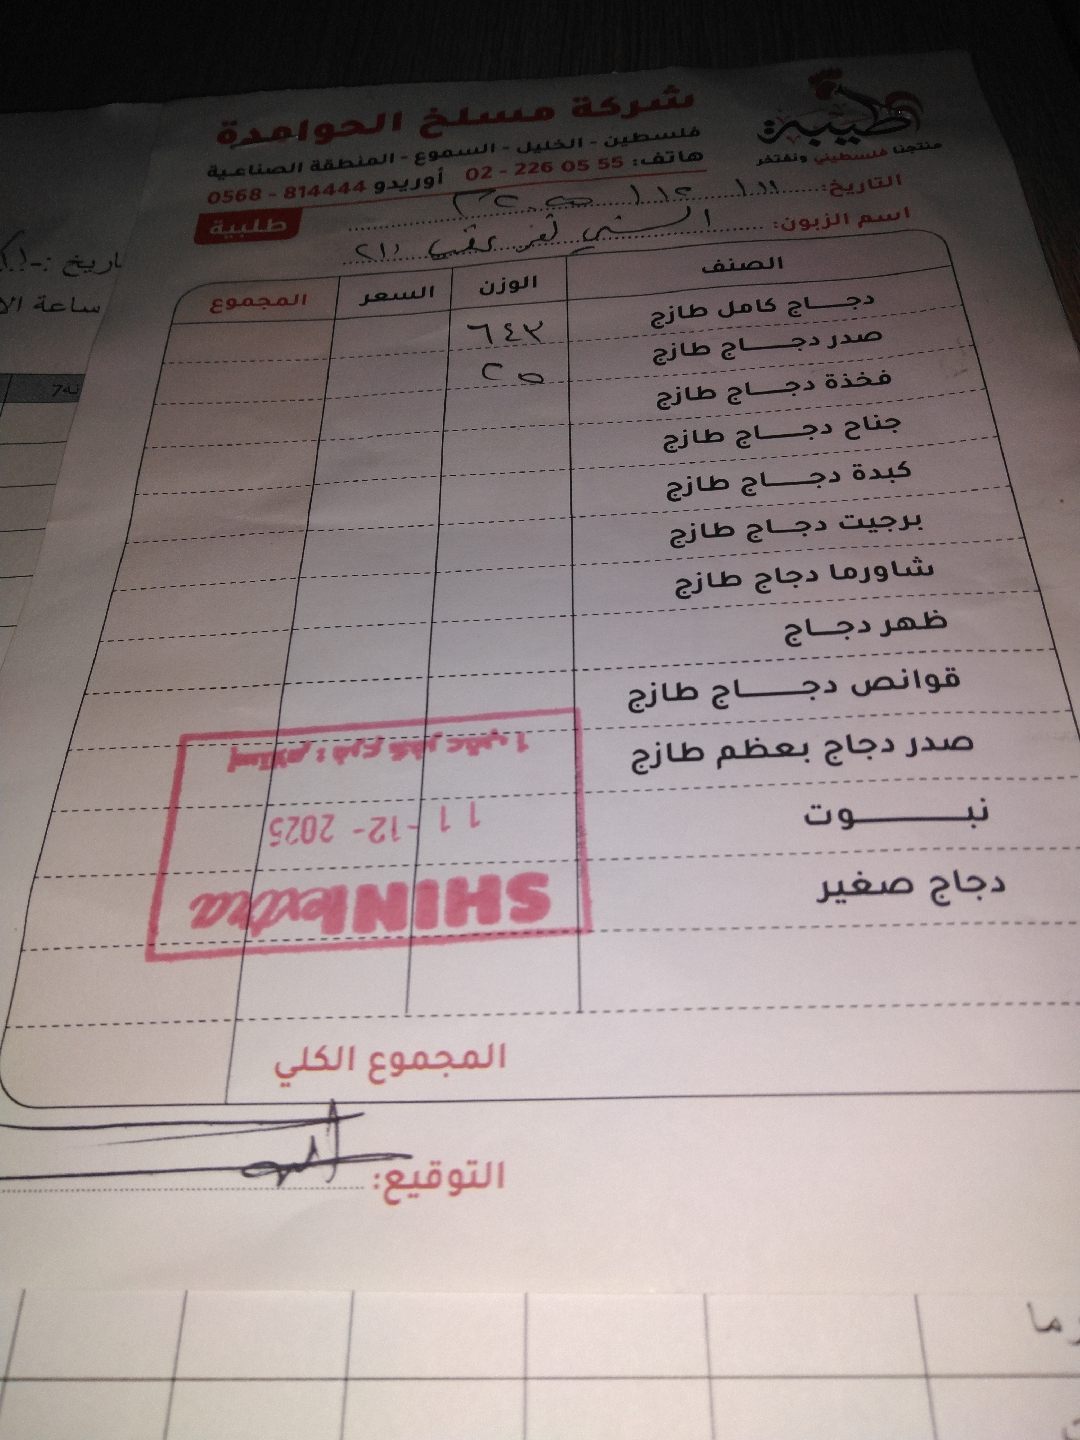 طيبة
منتجنا فلسطيني ونفتخر
شركة مسلخ الحوامدة
فلسطين - الخليل - السموع - المنطقة الصناعية
هاتف: 02 - 226 05 55 أوريدو 0568 - 814444
التاريخ: ١١ / ١٢ /
طلبية
اسم الزبون: الشني كفر عقب
الصنف الوزن السعر المجموع
دجاج كامل طازج ٦٤٣
صدر دجاج طازج ٢٥
فخذة دجاج طازج
جناح دجاج طازج
كبدة دجاج طازج
برجيت دجاج طازج
شاورما دجاج طازج
ظهر دجاج
قوانص دجاج طازج
صدر دجاج بعظم طازج
نبوت
دجاج صغير
المجموع الكلي
التوقيع:
SHINI extra
11 -12- 2025
إستلام : فرع كفر عقب 1
ساعة